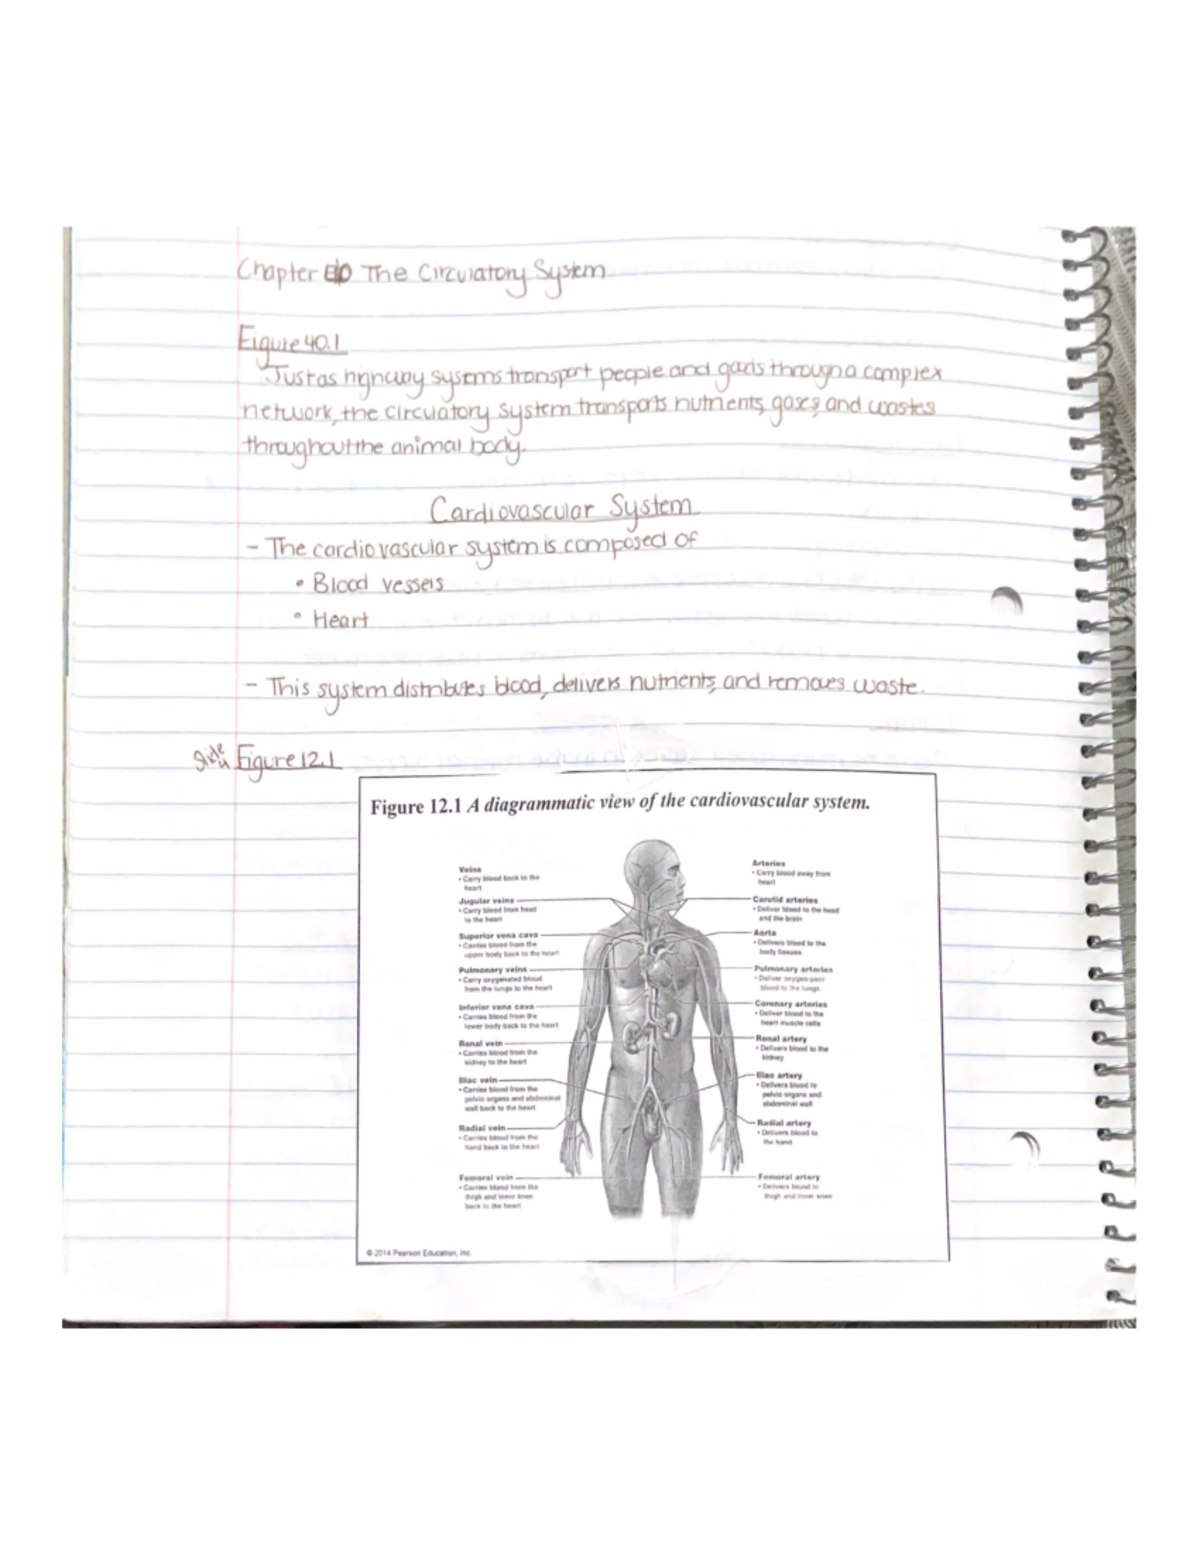 Chapter 40 The Circulatory System
Figure 40.1
Just as highway systems transport people and goods through a complex
network, the circulatory system transports nutrients, gases, and wastes
throughout the animal body.
Cardiovascular System
- The cardiovascular system is composed of
• Blood vessels
• Heart
- This system distributes blood, delivers nutrients, and removes waste.
Slide Figure 12.1
Figure 12.1 A diagrammatic view of the cardiovascular system.
Veins
• Carry blood back to the
heart
Jugular veins
• Carry blood from head
to the heart
Superior vena cava
• Carries blood from the
upper body back to the heart
Pulmonary veins
• Carry oxygenated blood
from the lungs to the heart
Inferior vena cava
• Carries blood from the
lower body back to the heart
Renal vein
• Carries blood from the
kidney to the heart
Iliac vein
• Carries blood from the
pelvic organs and abdominal
wall back to the heart
Radial vein
• Carries blood from the
hand back to the heart
Femoral vein
• Carries blood from the
thigh and inner knee
back to the heart
Arteries
• Carry blood away from
heart
Carotid arteries
• Deliver blood to the head
and the brain
Aorta
• Delivers blood to the
body tissues
Pulmonary arteries
• Deliver oxygen-poor
blood to the lungs
Coronary arteries
• Deliver blood to the
heart muscle cells
Renal artery
• Delivers blood to the
kidney
Iliac artery
• Delivers blood to
pelvic organs and
abdominal wall
Radial artery
• Delivers blood to
the hand
Femoral artery
• Delivers blood to
thigh and inner knee
© 2014 Pearson Education, Inc.